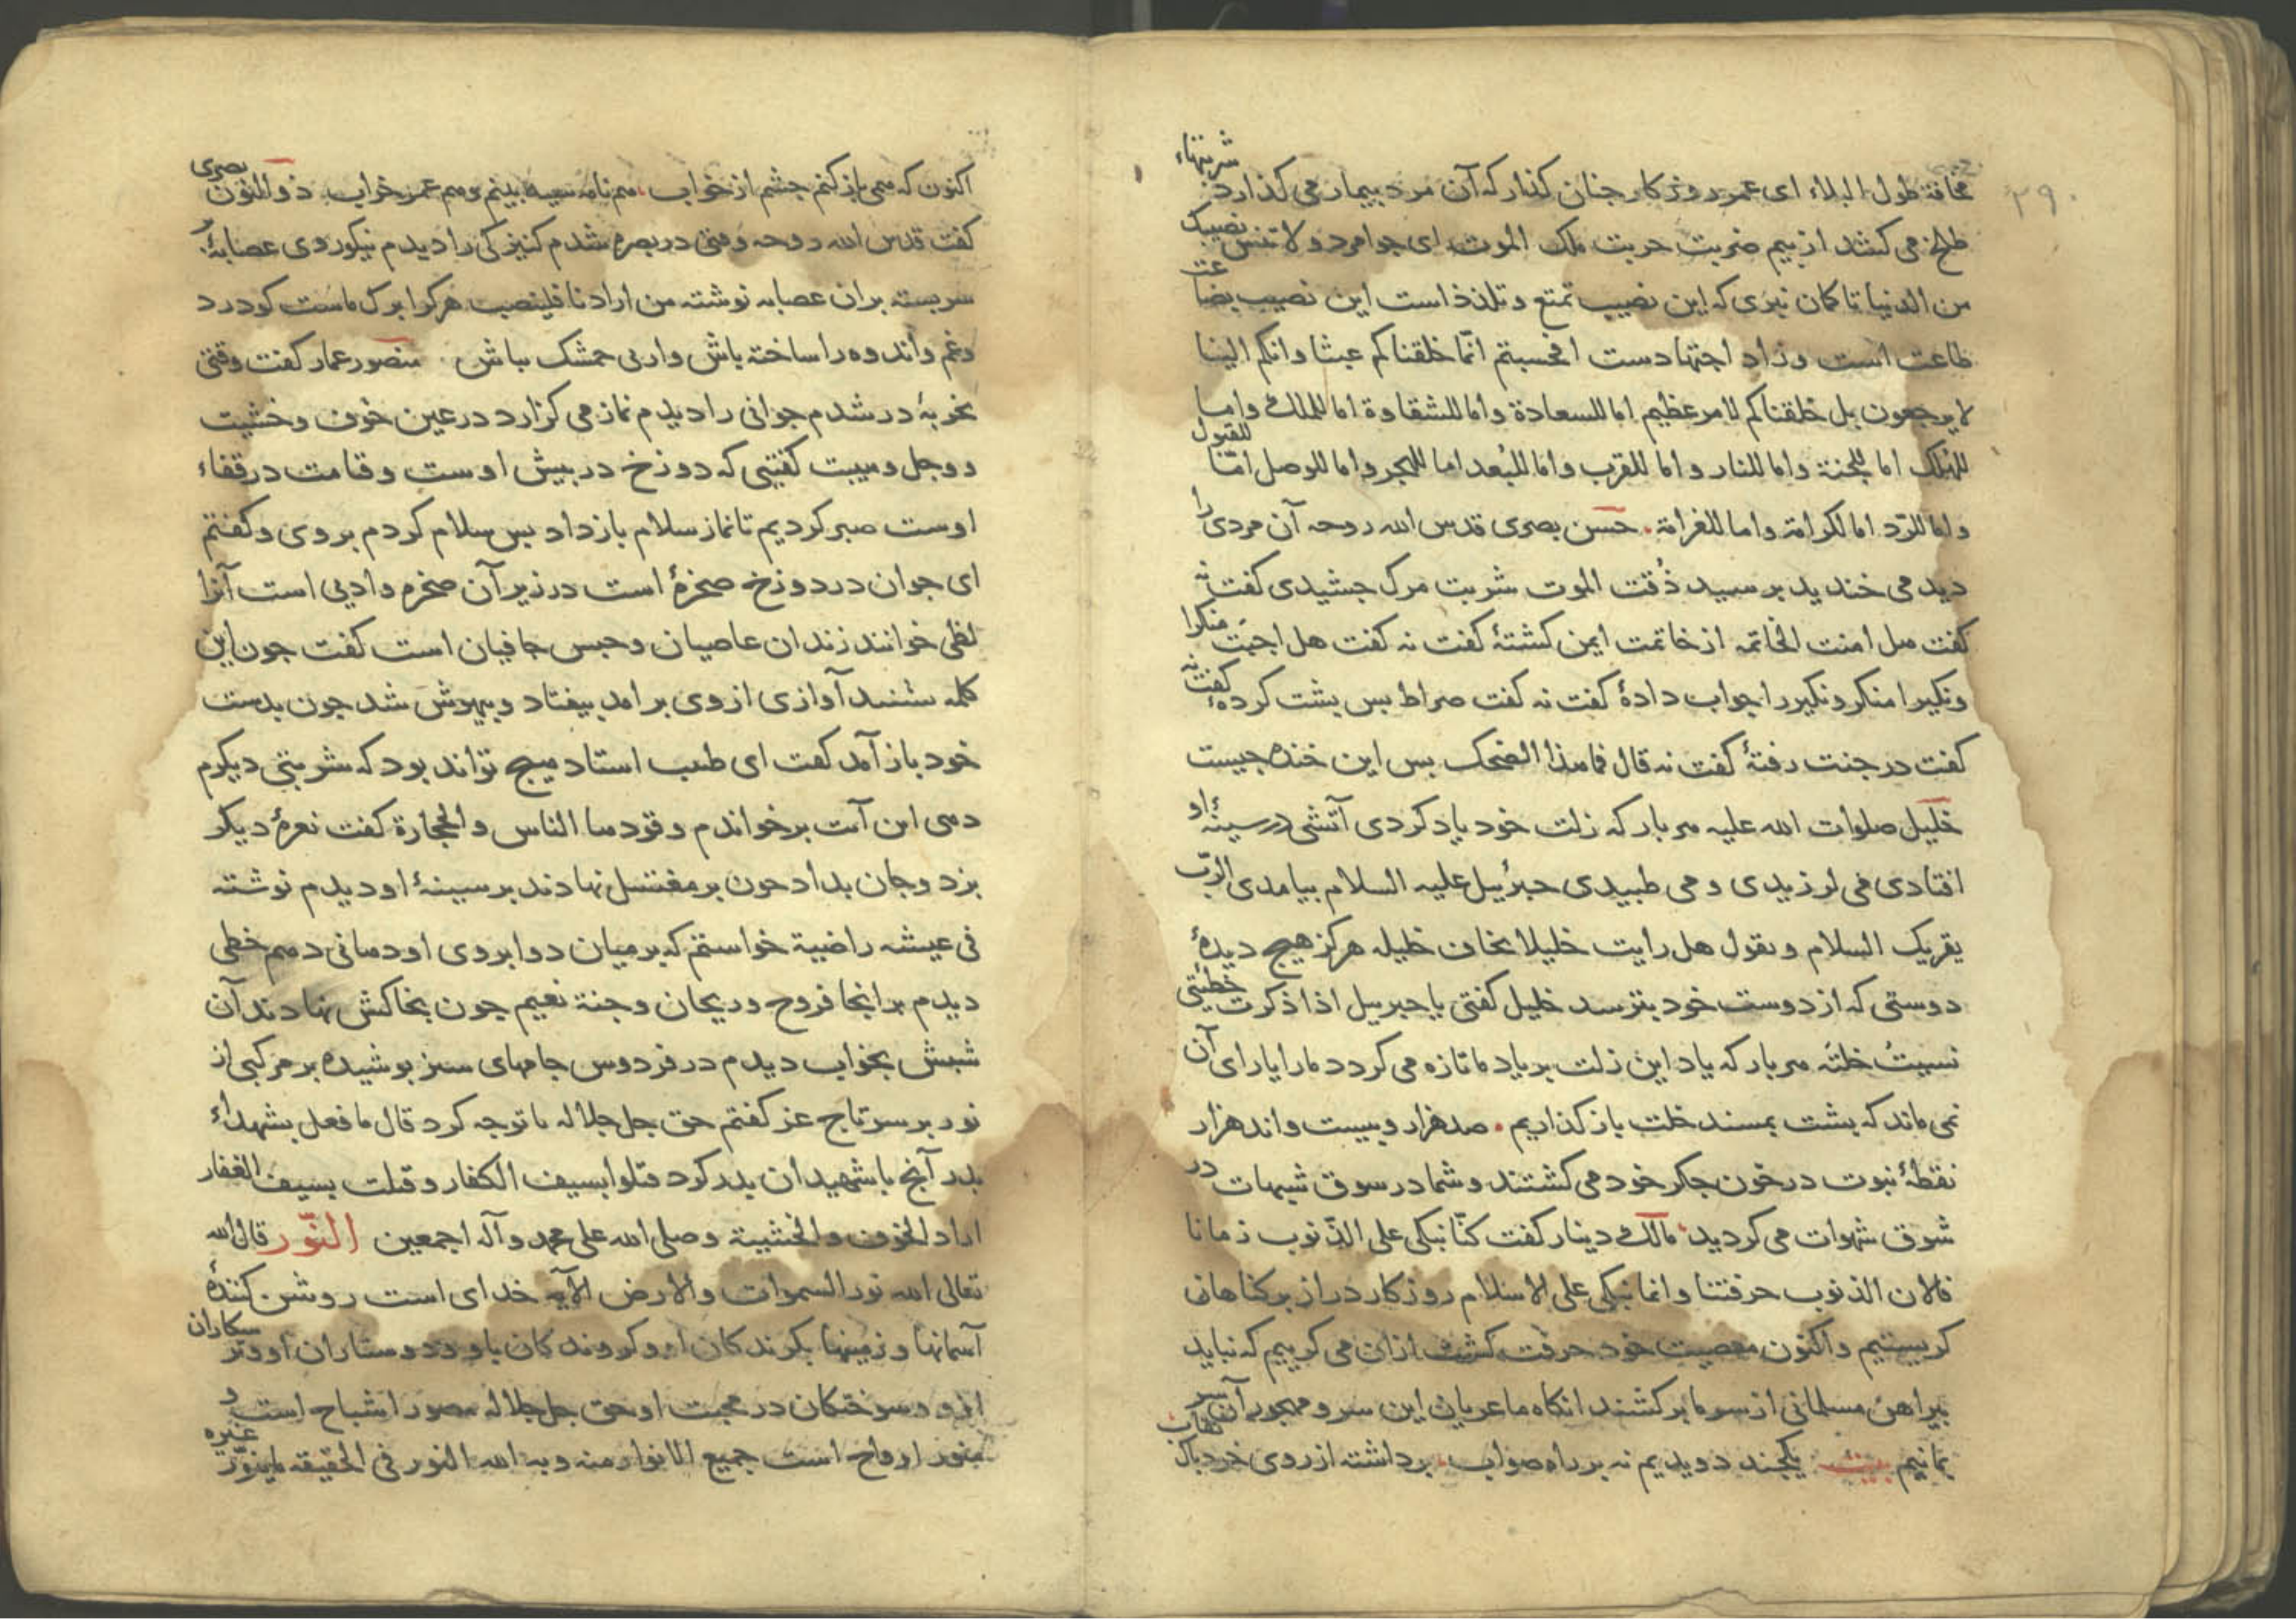 ۲۹۰
مخافة طول البلاء ای عمر روزکار جنان کذار که آن مرد بیمار می کذارد شربتهاء
طلخ می کشد از بیم ضربت حربت ملک الموت ای جوامرد و لا تنس نصیبک
من الدنیا تا کمان نبری که این نصیب تمتع و تلذذ است این نصیب بضاعت
طاعت است و زاد اجتهادست افحسبتم انّما خلقناکم عبثا وانکم الینا
لا یرجعون بل خلقناکم لامر عظیم اما للسعادة واما للشقاوة اما للملک واما
للهلک اما للجنة واما للنار و اما للقرب واما للبُعد اما للهجر واما للوصل امّا للقبول
و اما للرّد اما لکرامة واما للغرامة. حسن بصری قدس الله روحه آن مردی را
دید می خندید برسید ذُقت الموت شربت مرک جشیدی کفت نه
کفت هل امنت الخاتمه از خاتمت ایمن کشتهٔ کفت نه کفت هل اجبت منکرا
ونکیرا منکر و نکیر را جواب دادهٔ کفت نه کفت صراط بس بشت کردهٔ کفت نه
کفت در جنت رفتهٔ کفت نه قال فما هذا الضحک بس این خنده جیست
خلیل صلوات الله علیه هر بار که زلت خود یاد کردی آتشی در سینهٔ او
افتادی می لرزیدی و می طبیدی جبرئیل علیه السلام بیامدی الربّ
یقریک السلام و یقول هل رایت خلیلا یخاف خلیله هرکز هیج دیدهٔ
دوستی که از دوست خود بترسد خلیل کفتی یا جبرییل اذا ذکرت خطیئتی
نسیتُ خلته هر بار که یاد این زلت بر یاد ما تازه می کردد ما را یارای آن
نمی ماند که بشت بمسند خلت باز کذاریم. صد هزار و بیست واند هزار
نقطهٔ نبوت در خون جکر خود می کشتند و شما در سوق شبهات در
شوق شهوات می کردید. مالک دینار کفت کنّا نبکی علی الذنوب زمانا
فالان الذنوب حرفتنا وانما نبکی علی الاسلام روزکار دراز بر کناهان
کریستیم و اکنون معصیت خود حرفت کشت از ان می کرییم که نباید
بیراهن مسلمانی از سر ما برکشند انکاه ما عریان این سر و مهجور آن سر
بمانیم بیت یکجند دویدیم نه بر راه صواب. برداشته از روی خرد باک نقاب
اکنون که همی باز کنم جشم از خواب. هم نامه سیه بینم و هم عمر خراب. ذوالنون بصری
کفت قدس الله روحه وقتی در بصره شدم کنیزکی را دیدم نیکوروی عصابهٔ بر
سر بسته بران عصابه نوشته من ارادنا فلینصب هرکرا برک ماست کو درد
وغم واندوه را ساخته باش و ار نی خمشک بباش. منصور عمار کفت وقتی
بخربهٔ در شدم جوانی را دیدم نماز می کزارد در عین خوف وخشیت
و وجل و هیبت کفتیی که دوزخ در بیش اوست و قیامت در قفاء
اوست صبر کردیم تا نماز سلام باز داد بس سلام کردم بر وی و کفتم
ای جوان در دوزخ صخرهٔ است در زیر آن صخره وادیی است آنرا
لظی خوانند زندان عاصیان و حبس جافیان است کفت جون این
کلمه شنید آوازی از وی برآمد بیفتاد و بیهوش شد جون بدست
خود باز آمد کفت ای طبیب استاد هیج تواند بود که شربتی دیکرم
دهی این آیت برخواندم وقودها الناس والحجارة کفت نعرهٔ دیکر
بزد و جان بداد جون بر مغتسل نهادند بر سینهٔ او دیدم نوشته
فی عیشه راضیة خواستم که بر میان دو ابروی او دمانی دهم خطی
دیدم بر انجا فروح وریحان وجنة نعیم جون بخاکش نهادند آن
شبش بخواب دیدم در فردوس جامهای سبز بوشیده بر مرکبی از
نور بر سر تاج عز کفتم حق جل جلاله با تو جه کرد قال ما فعل بشهداء
بدر آنج با شهیدان بدر کرد قتلوا بسیف الکفار وقتلت بسیف الغفار
اراد الخوف والخشیة وصلی الله علی محمد وآله اجمعین النّور قال الله
تعالی الله نور السموات والارض الآیه خدای است روشن کنندهٔ
آسمانها و زمینها بکروندکان او و کروندکان باو و دوستاران او و
ازو و سوختکان در محبت او حق جل جلاله مصور اشباح است و
منور ارواح است جمیع الانوار منه و به الله النور فی الحقیقه لمنوّر غیره